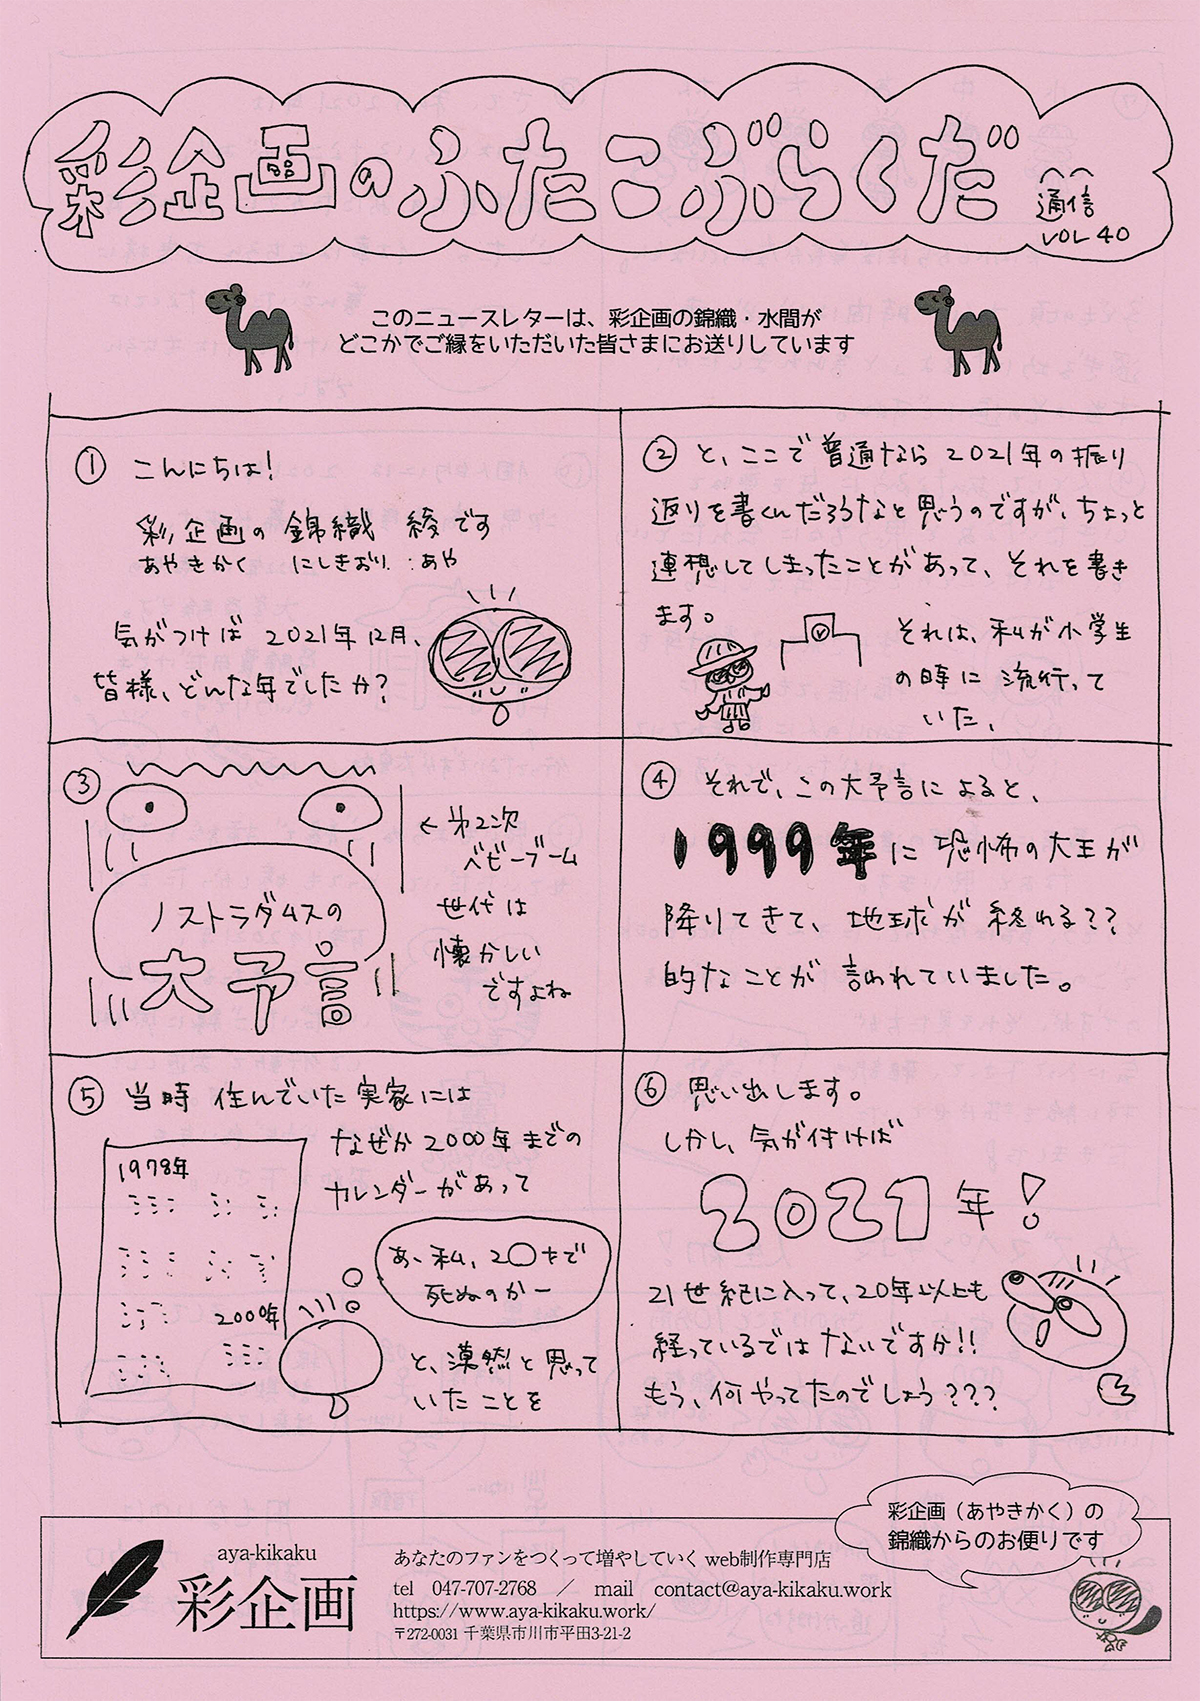 彩企画のふたこぶらくだ
通信
VOL 40
このニュースレターは、彩企画の錦織・水間が
どこかでご縁をいただいた皆さまにお送りしています
① こんにちは!
彩企画の 錦織 綾です
あやきかく にしきおり あや
気がつけば 2021年12月、
皆様、どんな年でしたか?
② と、ここで普通なら2021年の振り
返りを書くんだろうなと思うのですが、ちょっと
連想してしまったことがあって、それを書き
ます。
それは、私が小学生
の時に 流行って
いた、
③
ノストラダムスの
大予言
←第2次
ベビーブーム
世代は
懐かしい
ですよね
④ それで、この大予言によると、
1999年に 恐怖の大王が
降りてきて、地球が 終わる??
的なことが 言われていました。
⑤ 当時 住んでいた実家には
なぜか2000年までの
カレンダーがあって
1978年
2000年
あ、私、2〇才で
死ぬのかー
と、漠然と思って
いたことを
⑥ 思い出します。
しかし、気が付けば
2021年!
21世紀に入って、20年以上も
経っているではないですか!!
もう、何やってたのでしょう???
彩企画（あやきかく）の
錦織からのお便りです
aya-kikaku
彩企画
あなたのファンをつくって増やしていく web制作専門店
tel 047-707-2768 ／ mail contact@aya-kikaku.work
https://www.aya-kikaku.work/
〒272-0031 千葉県市川市平田3-21-2